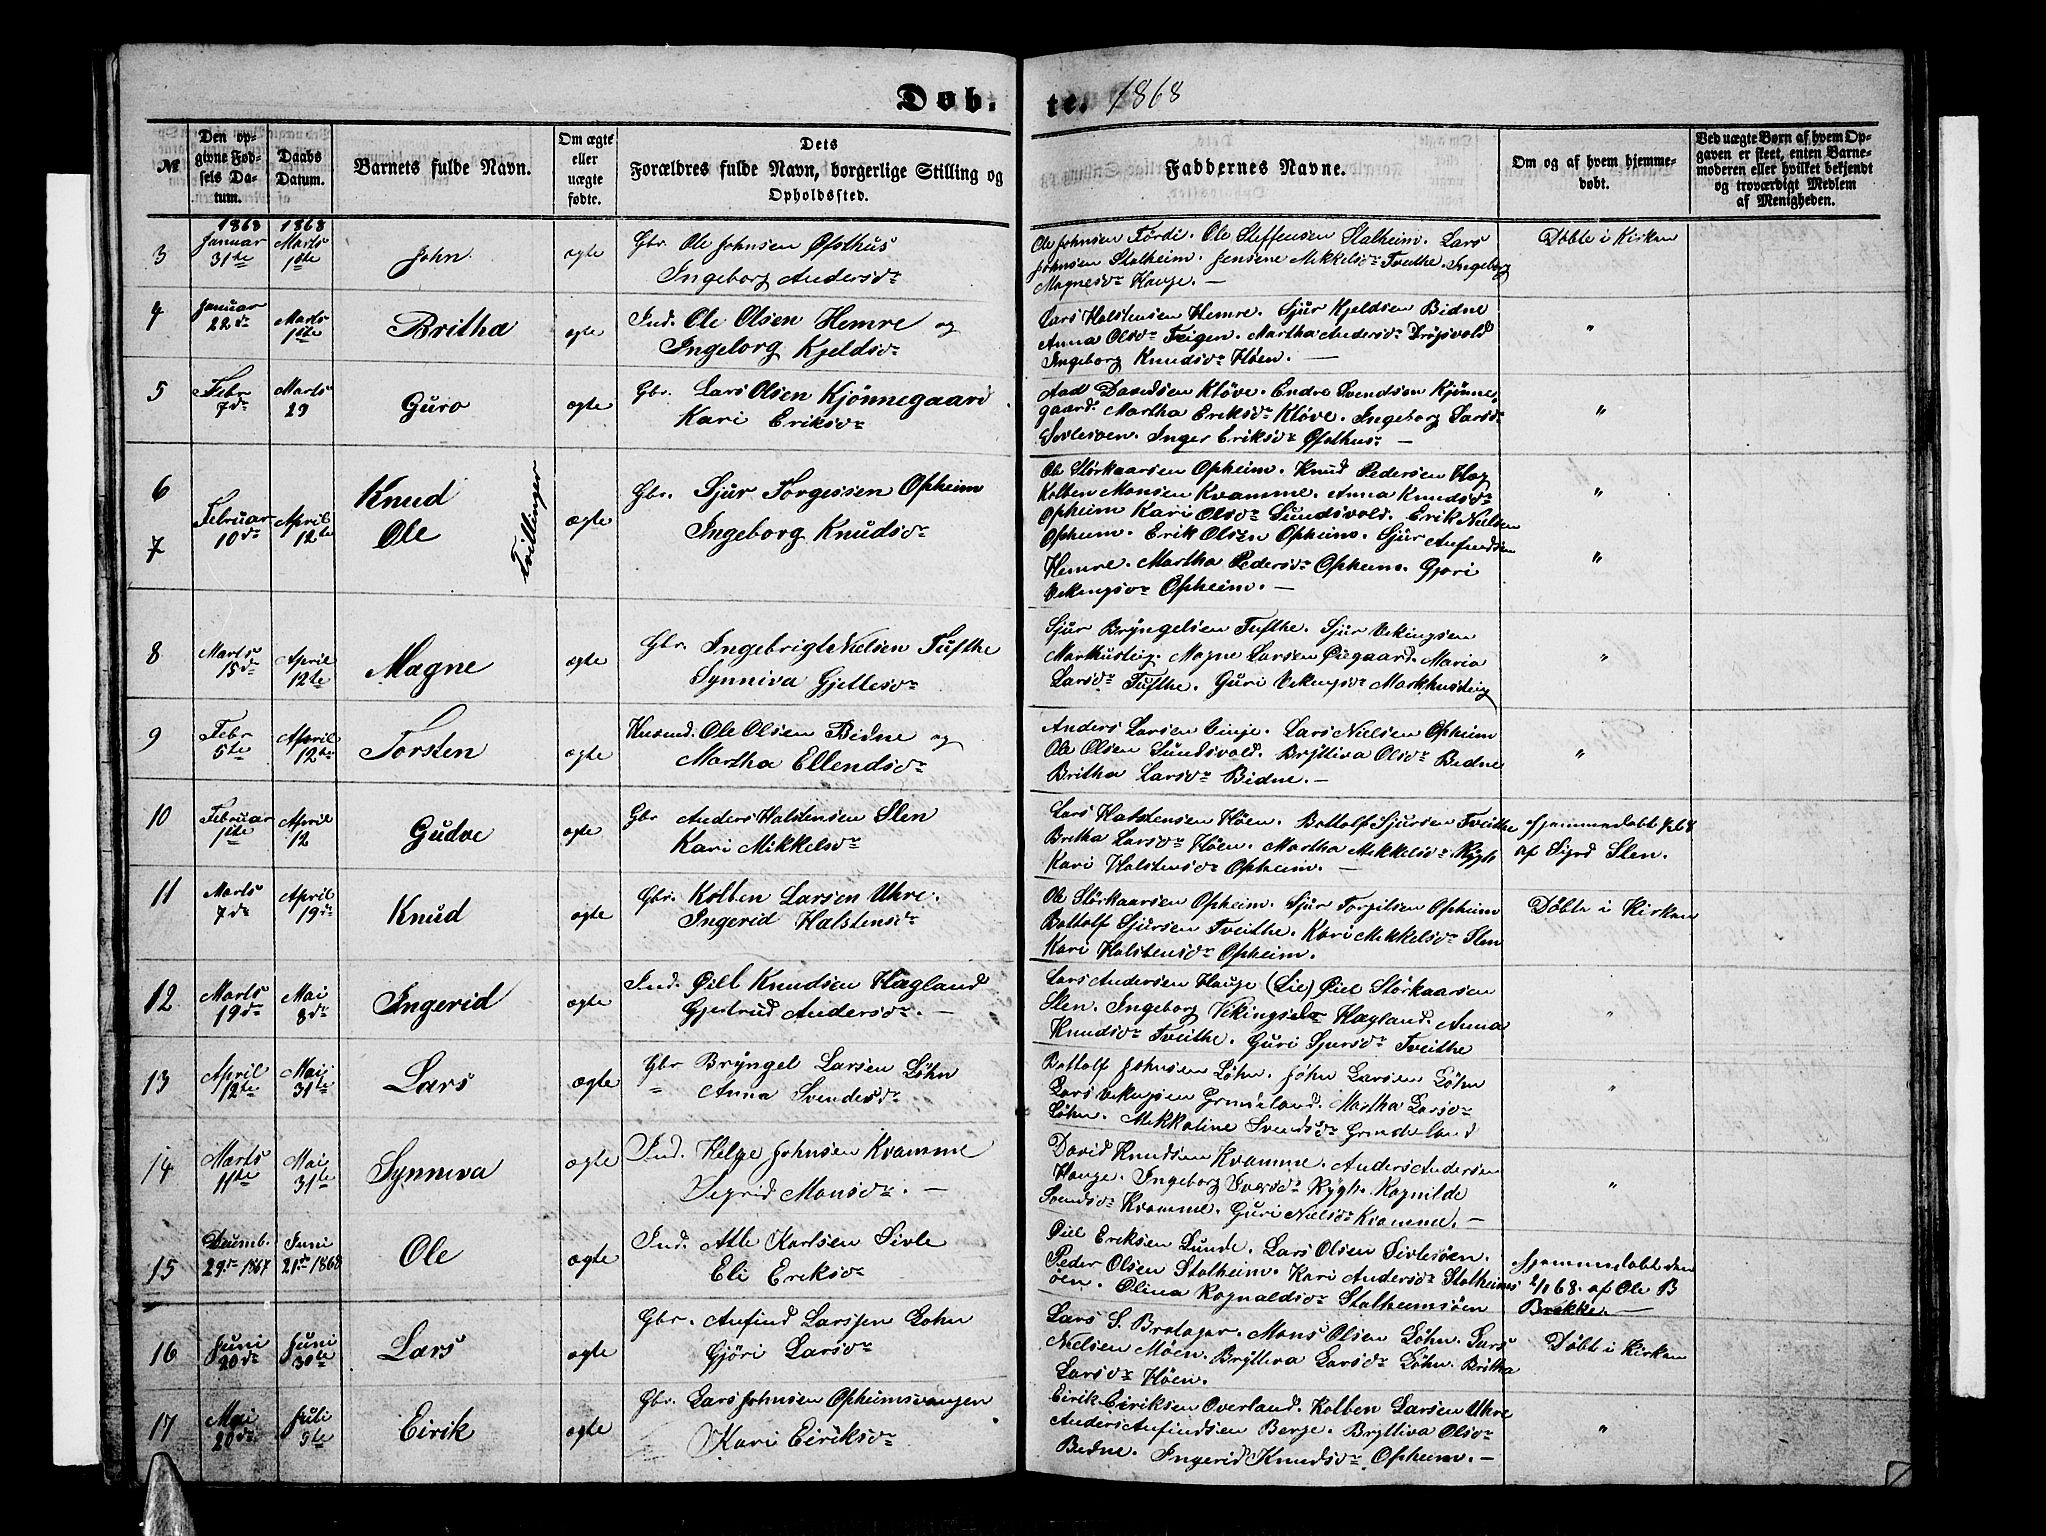 Døb-
te. 1868
№
Den op-
givne Fød-
sels Da-
tum.
Daabs
Datum.
Barnets fulde Navn.
Om ægte
eller
uægte
fødte.
Dets
Forældres fulde Navn, borgerlige Stilling og
Opholdssted.
Faddernes Navne.
Om og af hvem hjemme-
døbt.
Ved uægte Børn af hvem Op-
gaven er skeet, enten Barne-
moderen eller hvilket bekjendt
og troværdigt Medlem
af Menigheden.
1868 1868
3 Januar 31te Marts 1ste John ægte
Gbr. Ole Johnsen Øfsthus
Ingeborg Andersdr
Ole Johnsen Fördi. Ole Steffensen Stalheim. Lars
Johnsen Stalheim. Jensene Mikkelsdr Tveithe. Ingeborg
Magnesdr Hauje. —
Døbte i Kirken
4 Januar 22de Marts 1ste Britha ægte
Ind. Ole Olsen Hemre og
Ingeborg Kjeldsdr
Lars Halstensen Hemre. Sjur Kjeldsen Bidne
Anna Olsdr Teigen. Martha Andersdr
Ingeborg Knudsdr Høen. —
"
5 Febr 7de Marts 29 Guro ægte
Gbr. Lars Olsen Kjønnegaard
Kari Eriksdr
Aad Davidsen Kløve. Endre Svendsen Kjønne-
gaard. Martha Eriksdr Kløve. Ingeborg Larsdr
Sivlesøen. Inger Eriksdr Øfsthus. —
"
6 Knud
7 Februar 10de April 12te Ole Tvillinger ægte
Gbr. Sjur Torgessen Opheim
Ingeborg Knudsdr
Ole Störkaarsen Opheim. Knud Pedersen Hag
Kolben Monsen Kvamme. Anna Knudsdr
Opheim Kari Olsdr Sundsvold. Erik Nielsen
Opheim. Erik Olsen Opheim. Sjur Anfindsen
Hemre. Martha Pedersdr Opheim. Gjøri
Vekingsdr Opheim. —
"
"
8 Marts 15de April 12te Magne ægte
Gbr. Ingebrigt Nielsen Tufthe
Synniva Gjellesdr
Sjur Brÿngelsen Tufthe. Sjur Vekingsen
Markhusteig. Magne Larsen Øiegaard. Maria
Larsdr Tufthe. Guri Vekingsdr Markhusteig
"
9 Febr 5te April 12te Torsten ægte
Husmd. Ole Olsen Bidne og
Martha Ellendsdr
Anders Larsen Ginje. Lars Nielsen Opheim
Ole Olsen Sundsvold. Brÿttiva Olsdr Bidne
Britha Larsdr Bidne. —
"
10 Februar 1ste April 12 Gudve ægte
Gbr Anders Halstensen Slen
Kari Mikkelsdr
Lars Halstensen Høen. Bottolf Sjursen Tveithe
Britha Larsdr Høen. Martha Mikkelsdr Rÿgh
Kari Halstensdr Opheim. —
Hjemmedøbt
af Slen.
11 Marts 7de April 19de Knud ægte
Gbr. Kolben Larsen Uhre.
Ingerid Halstensdr
Ole Störkaarsen Opheim. Sjur Torgilsen Opheim
Bottolf Sjursen Tveithe. Kari Mikkelsdr Slen
Kari Halstensdr Opheim.
Døbte i Kirken
12 Marts 19de Mai 8de Ingerid ægte
Ind. Knudsen Hagland
Gjertrud Andersdr. —
Lars Andersen Hauje (Lie) Øiel Störkaarsen
Slen. Ingeborg Vikingsdr Hagland. Anna
Knudsdr Tveithe. Guri Sjursdr Tveithe
"
13 April 12te Mai 31te Lars ægte
Gbr Brÿngel Larsen Løhn
" Anna Svendsdr
Bottolf Johnsen Løhn. John Larsen Løhn
Lars Vekingsen Grindeland. Martha Larsdr
Løhn. Mikkaline Svendsdr Grindeland
"
14 Marts 11te Mai 31te Synniva ægte
Ind. Helge Johnsen Kvamme
Sigrid Monsdr. —
David Knudsen Kvamme. Anders Andersen
Hauge. Ingeborg Iversdr Rÿgh. Ragnilde
Svendsdr Kvamme. Guri Nielsdr Kvamme. —
"
15 Decemb. 29de 1867 Juni 21de 1868 Ole ægte
Ind. Atle Karlsen Sivle
Eli Eriksdr
Øiel Eriksen Lunde. Lars Olsen Sivlesøen.
Peder Olsen Stalheim. Kari Andersdr Stalheims
øen. Olina Ragnaldsdr Stalheimsøen
Hjemmedøbt den
2/1 68. af Ole B
Brekke. —
16 Juni 20de Juni 30te Lars ægte
Gbr. Anfind Larssen Løhn
Gjøri Larsdr
Lars S. Bratager. Mons Olsen Løhn. Lars
Nielsen Møen. Brÿttiva Larsdr Løhn. Britha
Larsdr Høen.
Døbte i Kirken
17 Mai 20de Juli 5te Eirik ægte
Gbr. Lars Johnsen Opheimsvangen
Kari Eiriksdr
Eirik Eiriksen Overland. Kolben Larsen Uhre
Anders Anfindsen Berge. Bryttiva Olsdr
Bidne. Ingerid Knudsdr Opheim. —
"